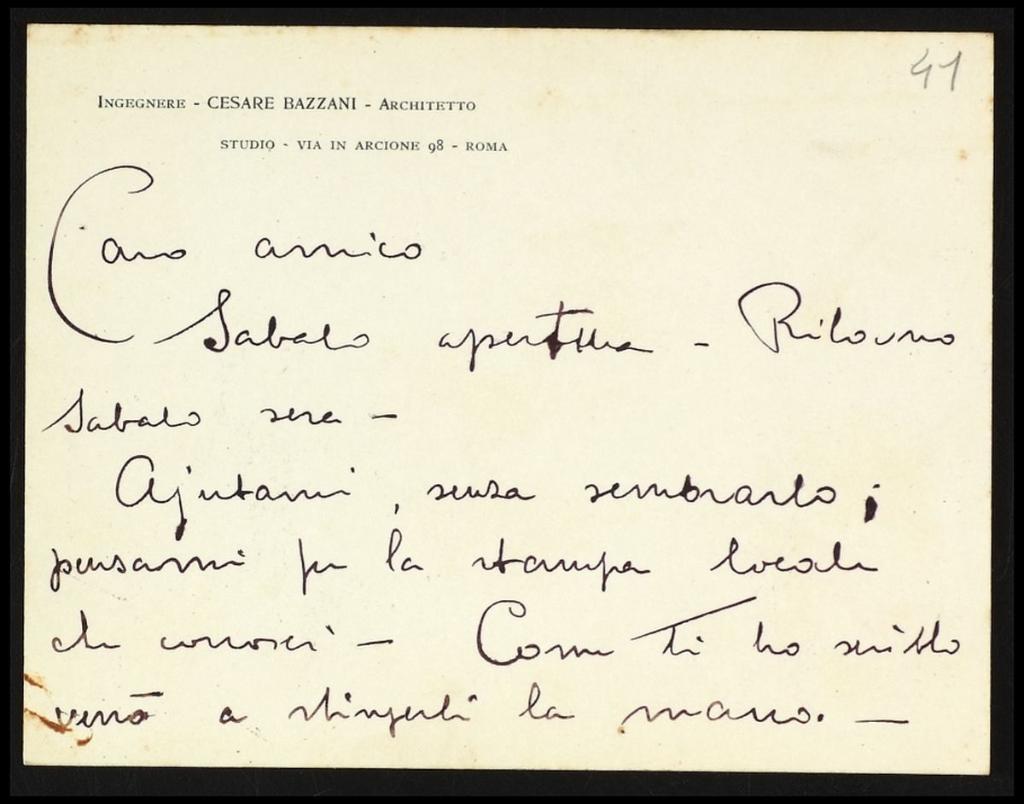 41
INGEGNERE - CESARE BAZZANI - ARCHITETTO
STUDIO - VIA IN ARCIONE 98 - ROMA
Caro amico
Sabato apertura - Ritorno
Sabato sera -
Ajutami, senza sembrarlo;
pensami per la stampa locale
che conosci - Come ti ho scritto
verrò a stringerti la mano. -